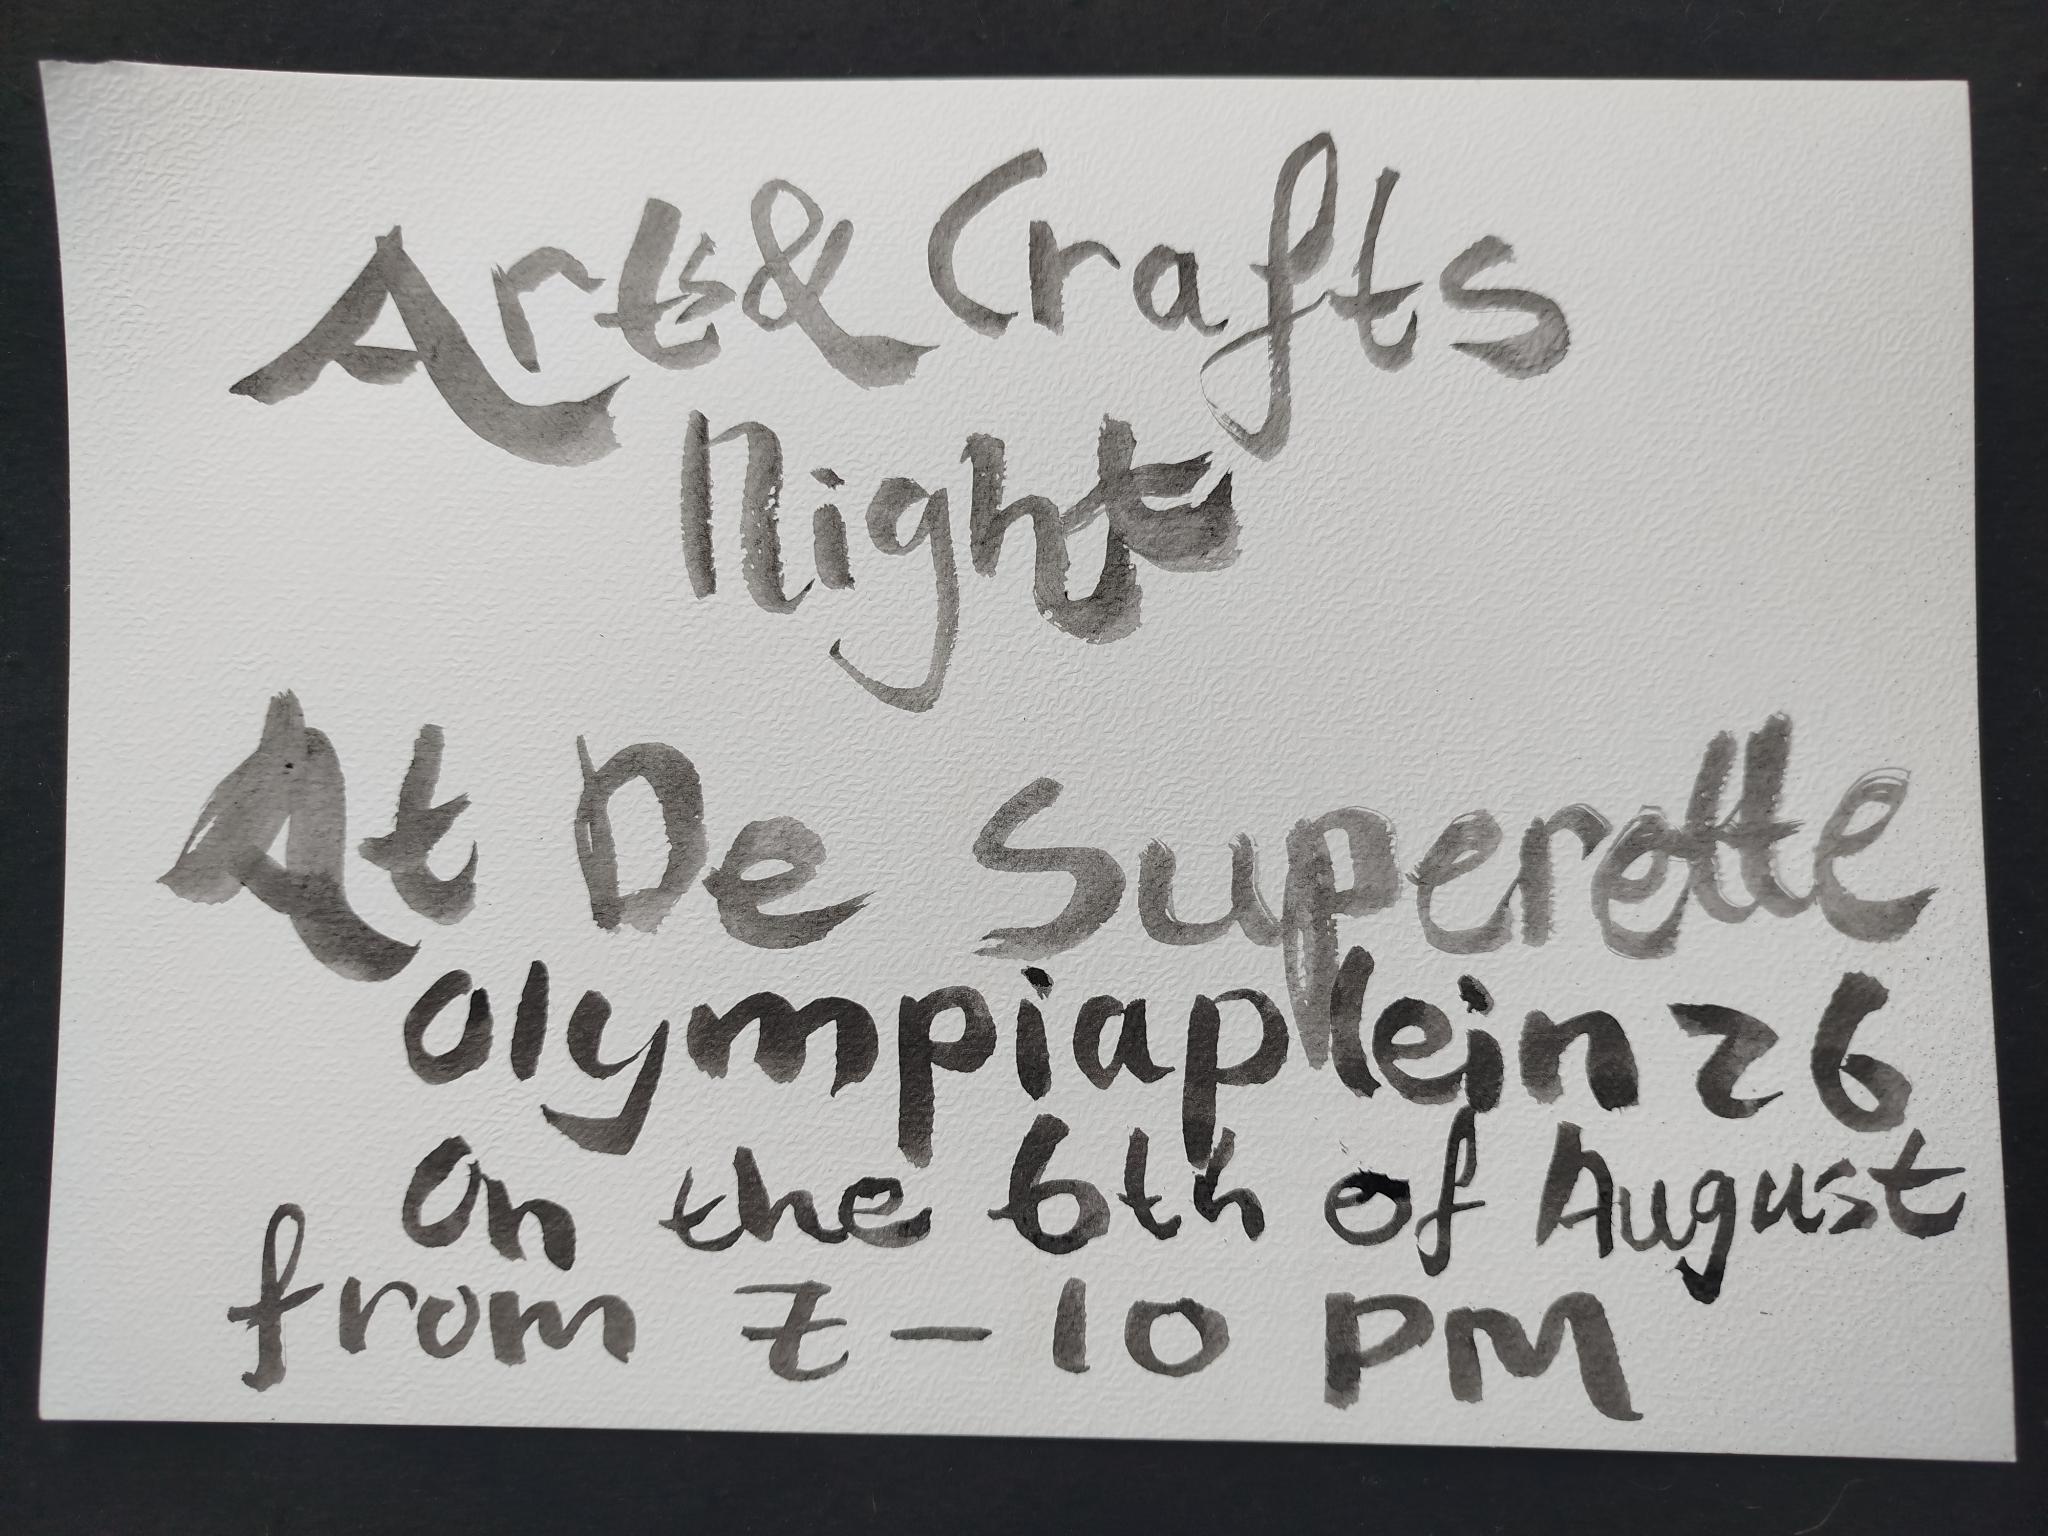 Arts & Crafts
Night
At De Superette
Olympiaplein 26
On the 6th of August
from 7 - 10 PM